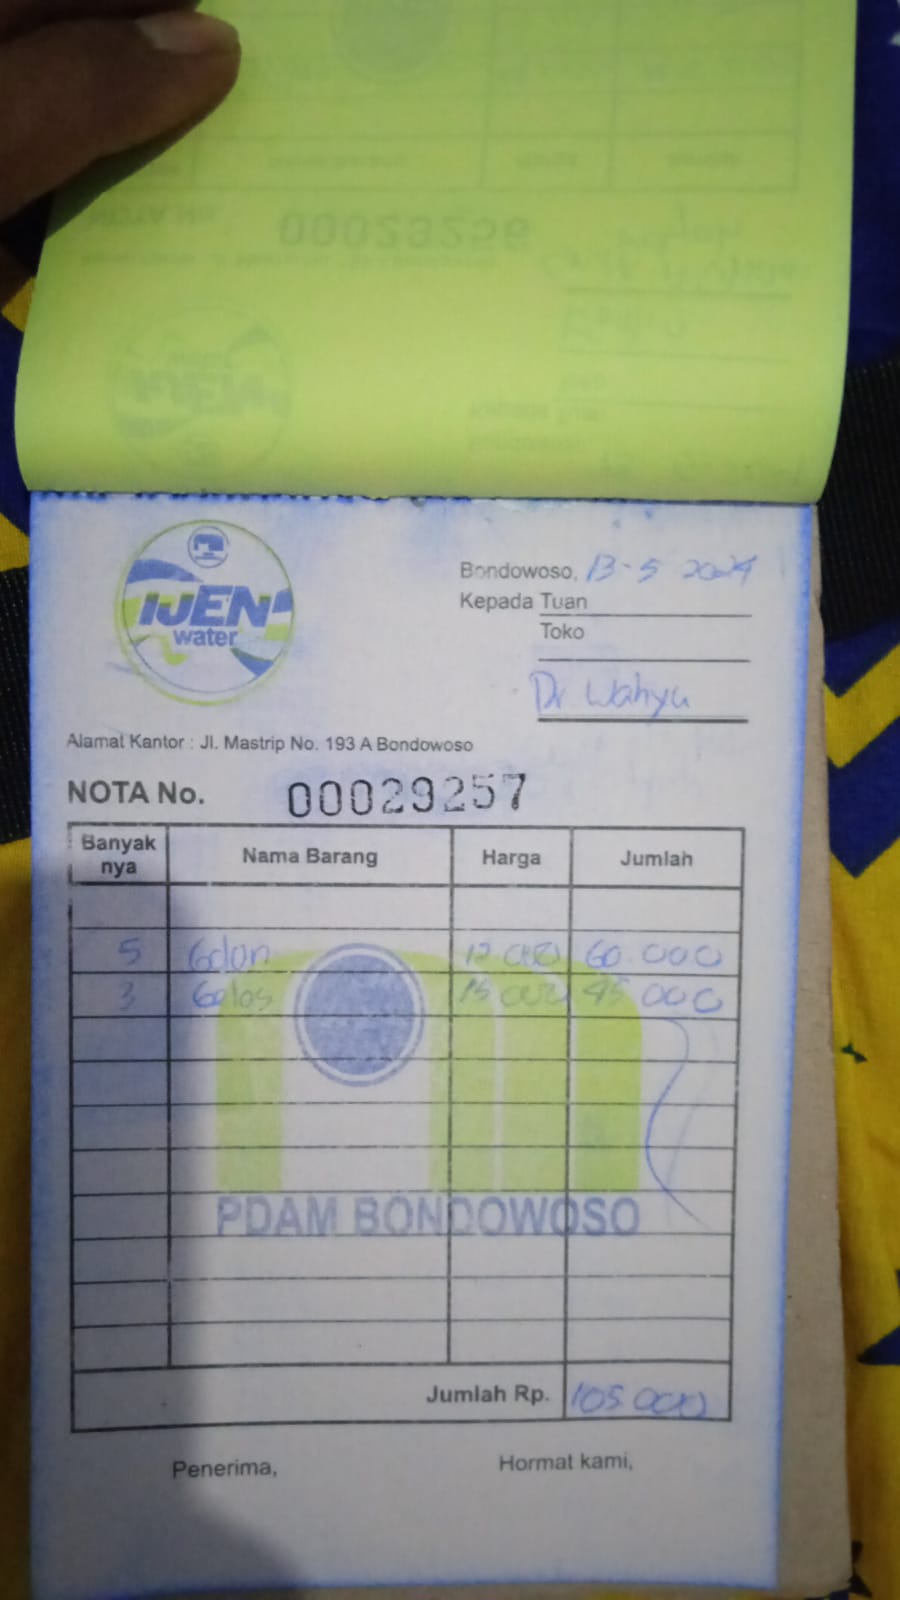 00029256
IJEN
water
Bondowoso, 13-5 2024
Kepada Tuan
Toko
Dr Wahyu
Alamat Kantor : Jl. Mastrip No. 193 A Bondowoso
NOTA No. 00029257
Banyak nya Nama Barang Harga Jumlah
5 Galon 12.000 60.000
3 Gelas 15.000 45.000
PDAM BONDOWOSO
Jumlah Rp. 105.000
Penerima, Hormat kami,